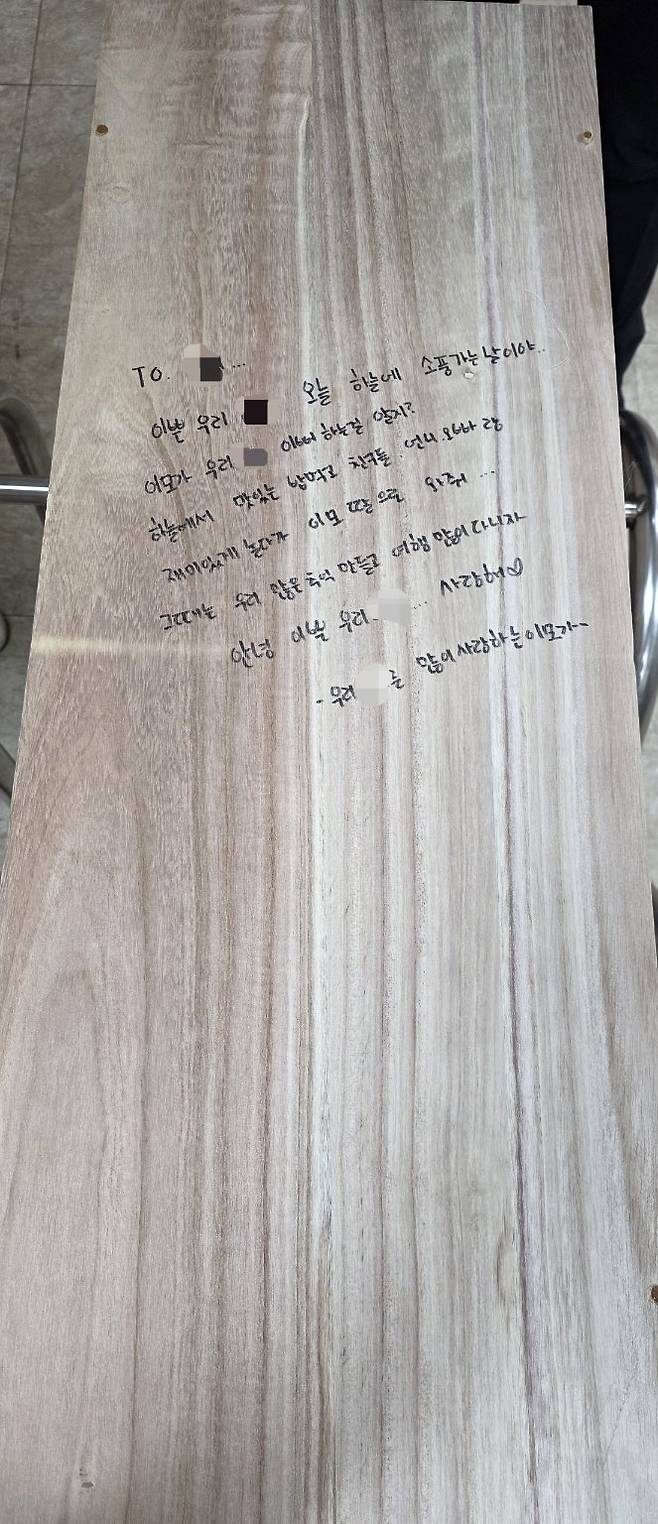 TO. ...
이쁜 우리 오늘 하늘에 소풍가는날이야..
이모가 우리 이뻐하는걸 알지?
하늘에서 맛있는 밥먹고 친구들 언니.오빠랑
재미있게 놀다가 이모 딸으로 와줘 ...
그때는 우리 많은 추억 만들고 여행 많이 다니자
안녕 이쁜 우리.... 사랑해♡
- 우리 를 많이 사랑하는 이모가--